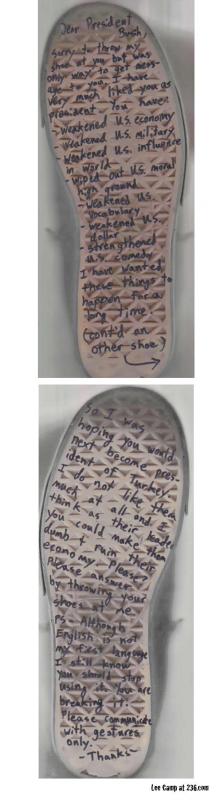 Dear President
Bush,
sorry to throw my
shoe at you but was
only way to get mess-
age to you. I have
very much liked you as
president. You have:
- weakened U.S. economy
- weakened U.S. military
- weakened U.S. influence
in world
- wiped out U.S. moral
high ground
- weakened U.S.
vocabulary
- weakened U.S.
dollar
- strengthened
U.S. comedy
I have wanted
these things to
happen for a
long time
(cont'd on
other shoe)
So I was
hoping you would
next become pres-
ident of Turkey.
I do not like them
much at all and I
think as their leader
you could make them
dumb & ruin their
economy. Please?
Please answer
by throwing your
shoes at me
PS - Although
English is not
my first language
I still know
you should stop
using it. You are
breaking it.
Please communicate
with gestures
only.
- Thanks
Lee Camp at 236.com